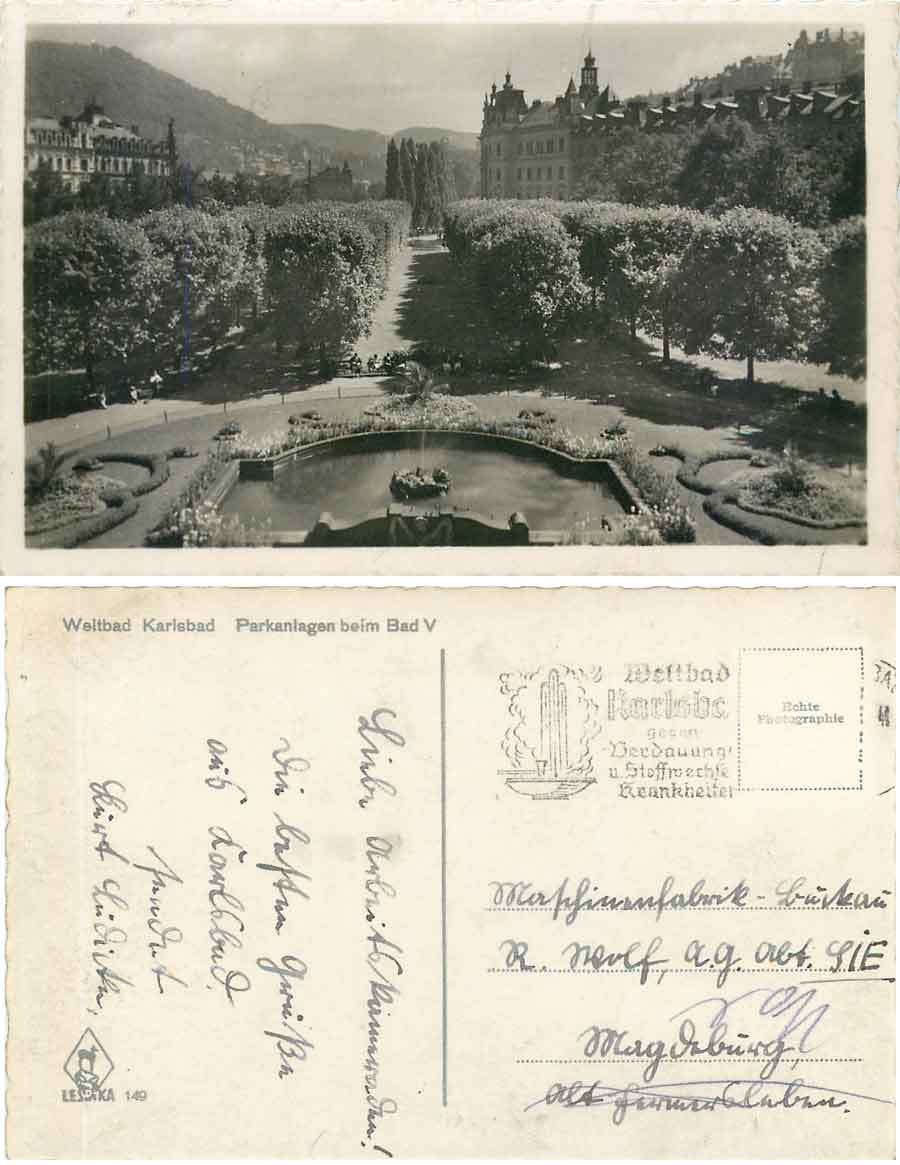 Weltbad Karlsbad Parkanlagen beim Bad V
Liebe Arbeitskameraden!
Die besten Grüße
aus Karlsbad
sendet
Kurt Lüdicke,
LESSKA 149
Weltbad
Karlsba
gegen
Verdauung
u. Stoffwechse
Krankheiten
Echte
Photographie
Maschinenfabrik - Buckau
R. Wolf, A.G. Abt. SIE
Magdeburg,
Alt Fermersleben.